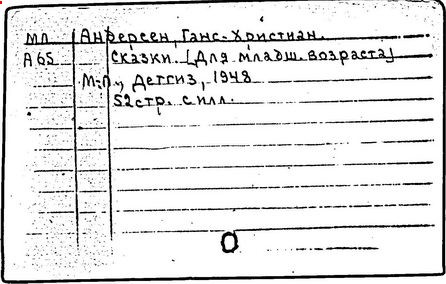 мл Андерсен, Ганс-Христиан.
А65 Сказки. [Для младш. возраста]
М.-Л., Детгиз, 1948
52 стр. с илл.